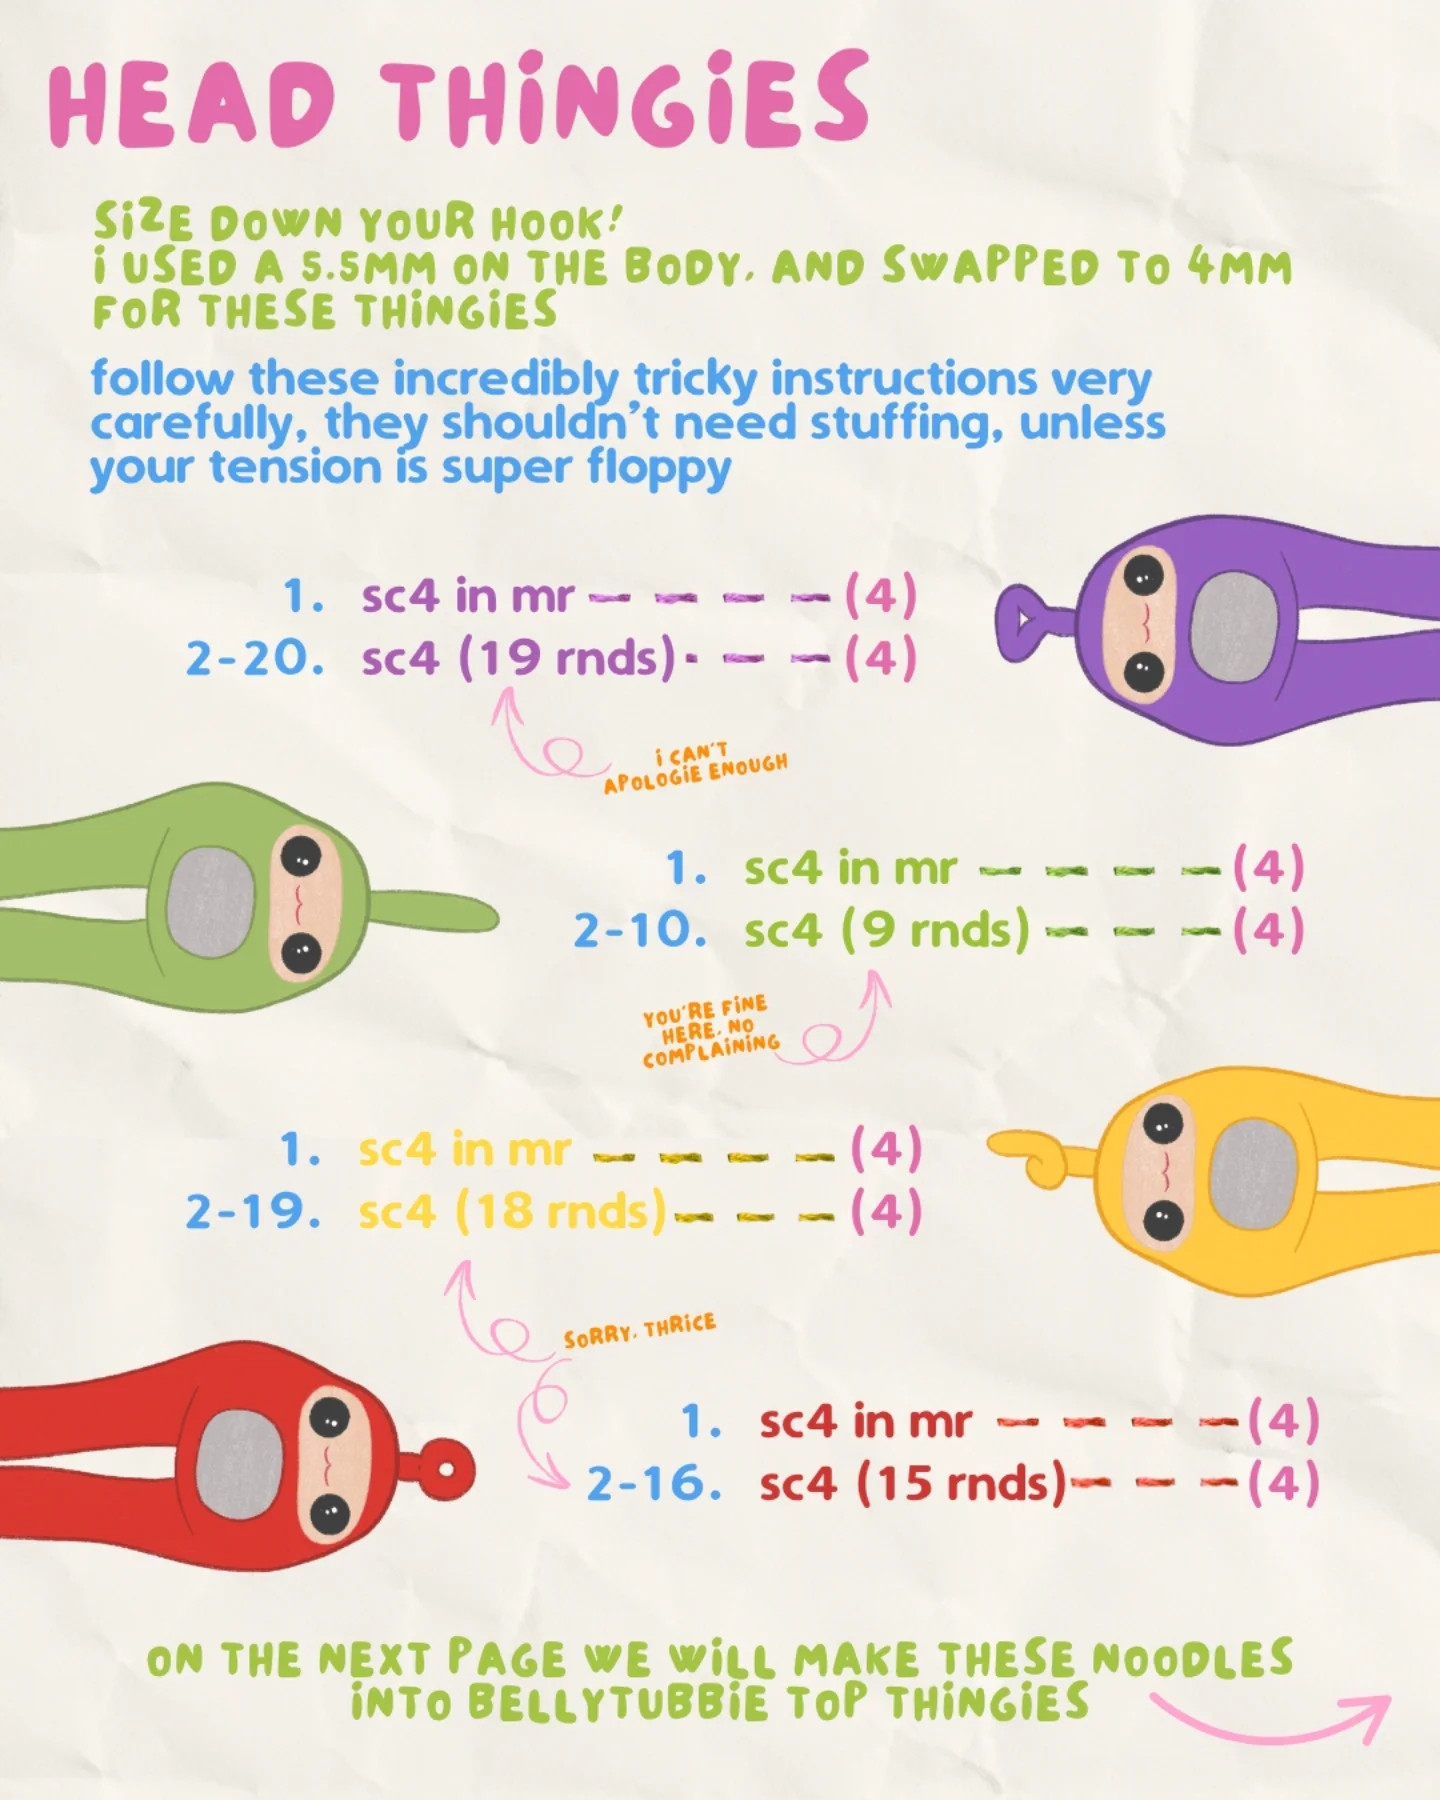 HEAD THiNGiES
SiZE DOWN YOUR HOOK!
i USED A 5.5MM ON THE BODY, AND SWAPPED TO 4MM
FOR THESE THiNGiES
follow these incredibly tricky instructions very
carefully, they shouldn't need stuffing, unless
your tension is super floppy
1. sc4 in mr (4)
2-20. sc4 (19 rnds) (4)
i CAN'T
APOLOGiE ENOUGH
1. sc4 in mr (4)
2-10. sc4 (9 rnds) (4)
YOU'RE FiNE
HERE, NO
COMPLAiNiNG
1. sc4 in mr (4)
2-19. sc4 (18 rnds) (4)
SORRY, THRiCE
1. sc4 in mr (4)
2-16. sc4 (15 rnds) (4)
ON THE NEXT PAGE WE WiLL MAKE THESE NOODLES
iNTO BELLYTUBBiE TOP THiNGiES